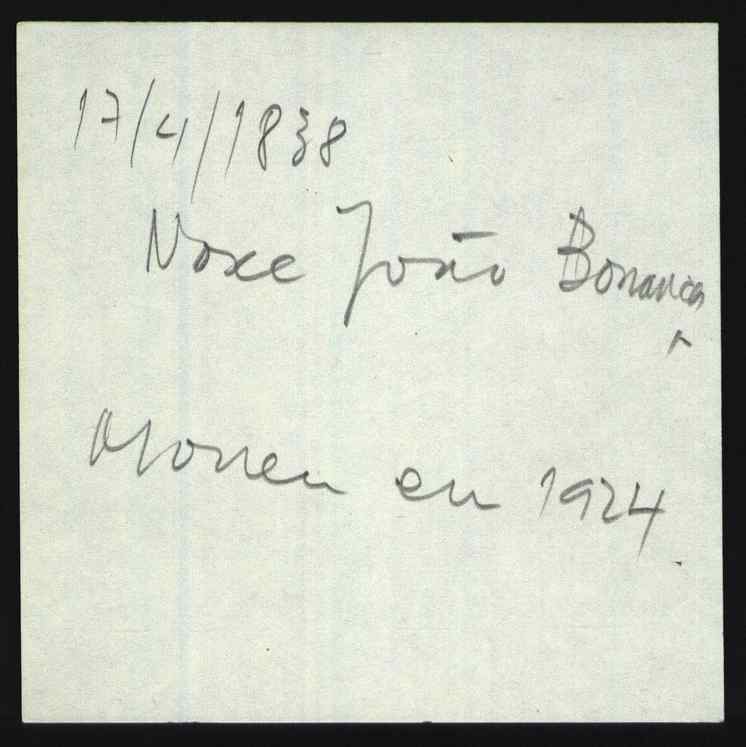 17/4/1838
Noxe João Bonança
Morreu en 1924.